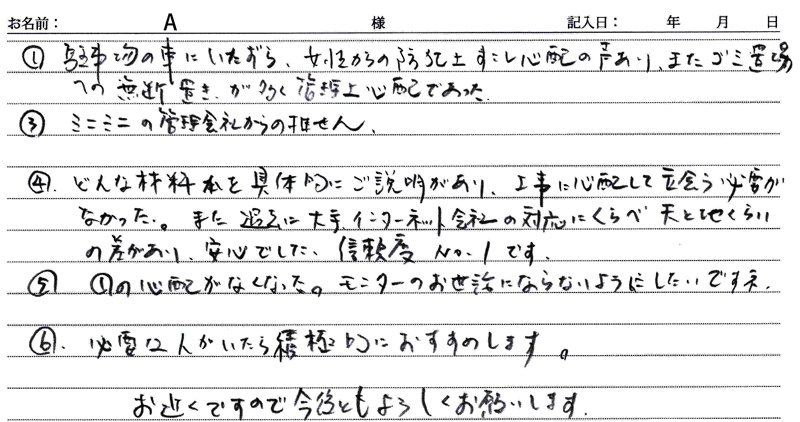 お名前： A 様 記入日： 年 月 日
① 駐車場の車にいたずら、女性からの防犯上すこし心配の声あり、またゴミ置場
への無断置きが多く管理上心配であった。
③ ミニミニの管理会社からの推せん、
④. どんな材料本を具体的にご説明があり、工事に心配して立会う必要が
なかった。また過去に大手インターネット会社の対応にくらべ天と地くらい
の差があり、安心でした、信頼度No.1です。
⑤ ①の心配がなくなった。モニターのお世話にならないようにしたいですネ.
⑥. 必要な人がいたら積極的におすすめします。
お近くですので今後ともよろしくお願いします.